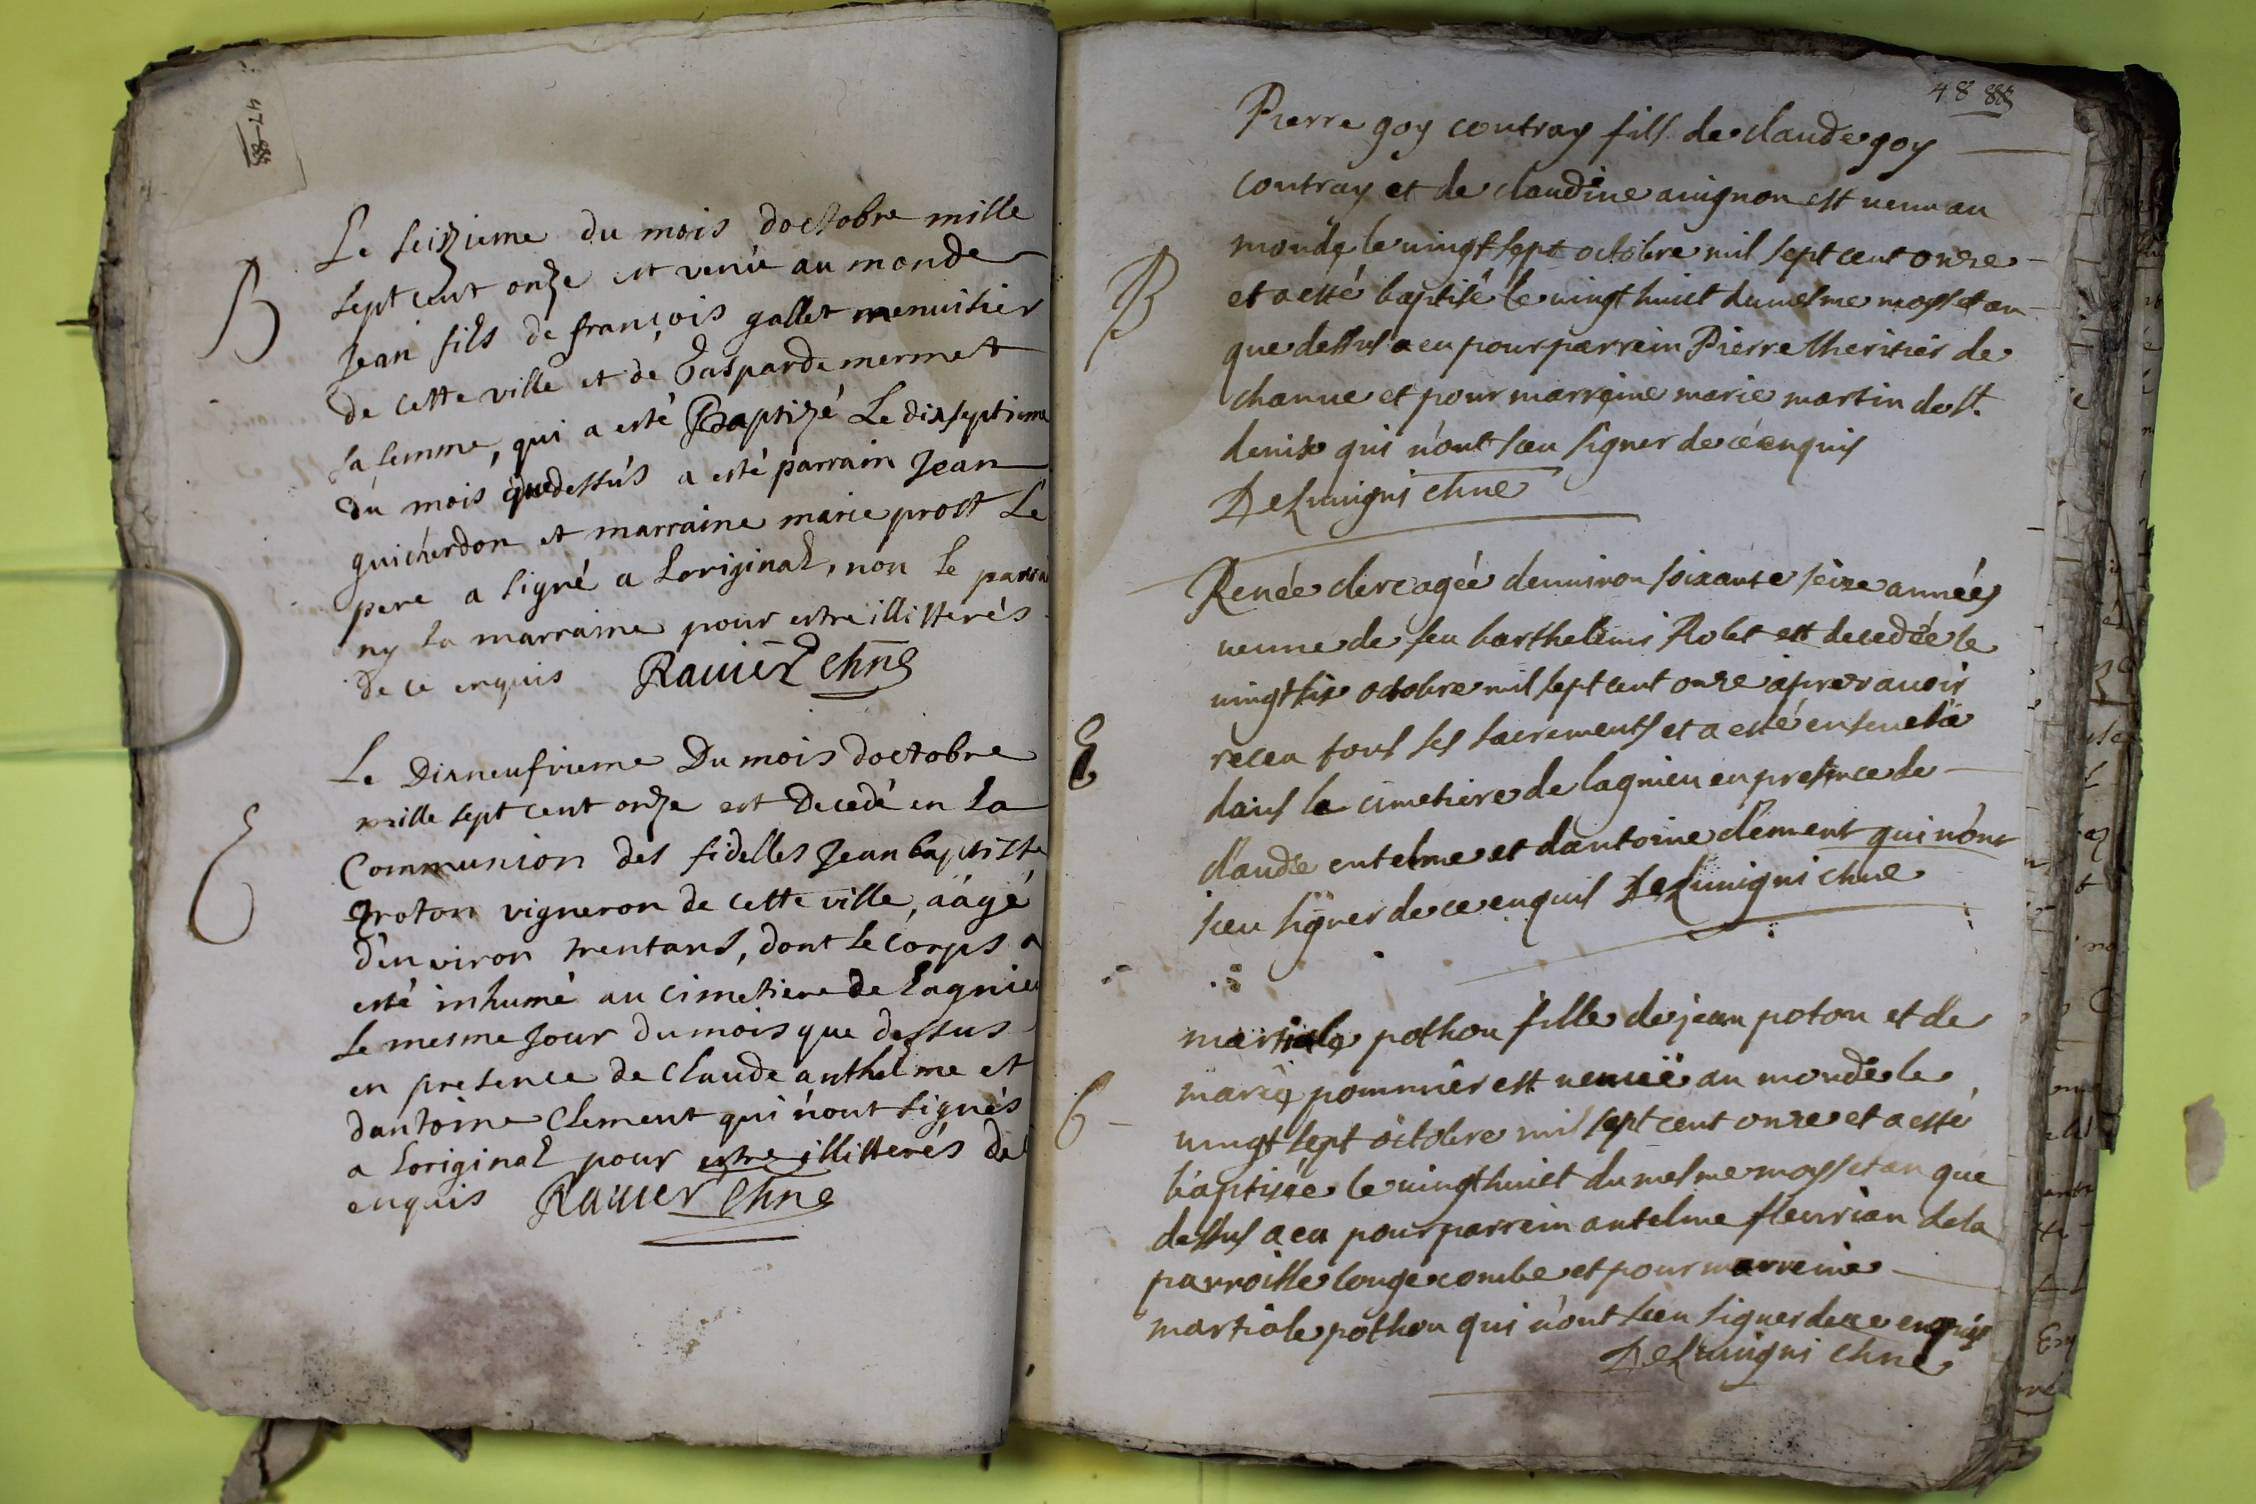 47
B
Le seizieme du mois doctobre mille
sept cent onze est venu au monde
Jean fils de françois gallet menuisier
de cette ville et de Gasparde mermet
sa femme, qui a esté Baptizé Le dixseptieme
du mois que dessus a esté parrain Jean
guicherdon et marraine marie prost Le
pere a signé a Loriginal, non le parrai
ny la marraine pour estre illitterés
de ce enquis Rauier chne
E
Le Dixneufvieme Du mois doctobre
mille sept cent onze est Decedé en La
Communion des fidelles Jean baptiste
vigneron de cette ville, aâgé
denviron trentans, dont le corps a
esté inhumé au cimetiere de Lagnieu
le mesme Jour du mois que dessus
en presence de Claude anthelme et
dantoine Clement qui nont signés
a Loriginal pour estre illitterés de
enquis Rauier Chne
48
Pierre goy contray fils de claude goy
B
contray et de claudine auignon est venu au
monde le vingt sept octobre mil sept cent onze
et a esté baptisé le vingt huict du mesme moys et an
que dessus a eu pour parrein Pierre lheritier de
et pour marreine marie martin de st.
denis qui n'ont sceu signer de ce enquis
Delunigni chne
E
Renée clerc agée denuiron soixante seize années
veuve de feu barthelemi Rolet est decedée le
vingt six octobre mil sept cent onze apres auoir
receu tous ses sacrements et a esté enseuelie
dans le cimetiere de lagnieu en presence de
claude entelme et dantoine clement qui n'ont
sceu signer de ce enquis Delunigni chne
martiale pothon fille de jean poton et de
B
marie pommier est venuë au monde le
vingt sept octobre mil sept cent onze et a esté
baptisée le vingt huict du mesme moys et an que
dessus a eu pour parrein antelme fleurian de la
parroisse longecombe et pour marreine
martiale pothon qui n'ont sceu signer de ce enquis
Delunigni chne